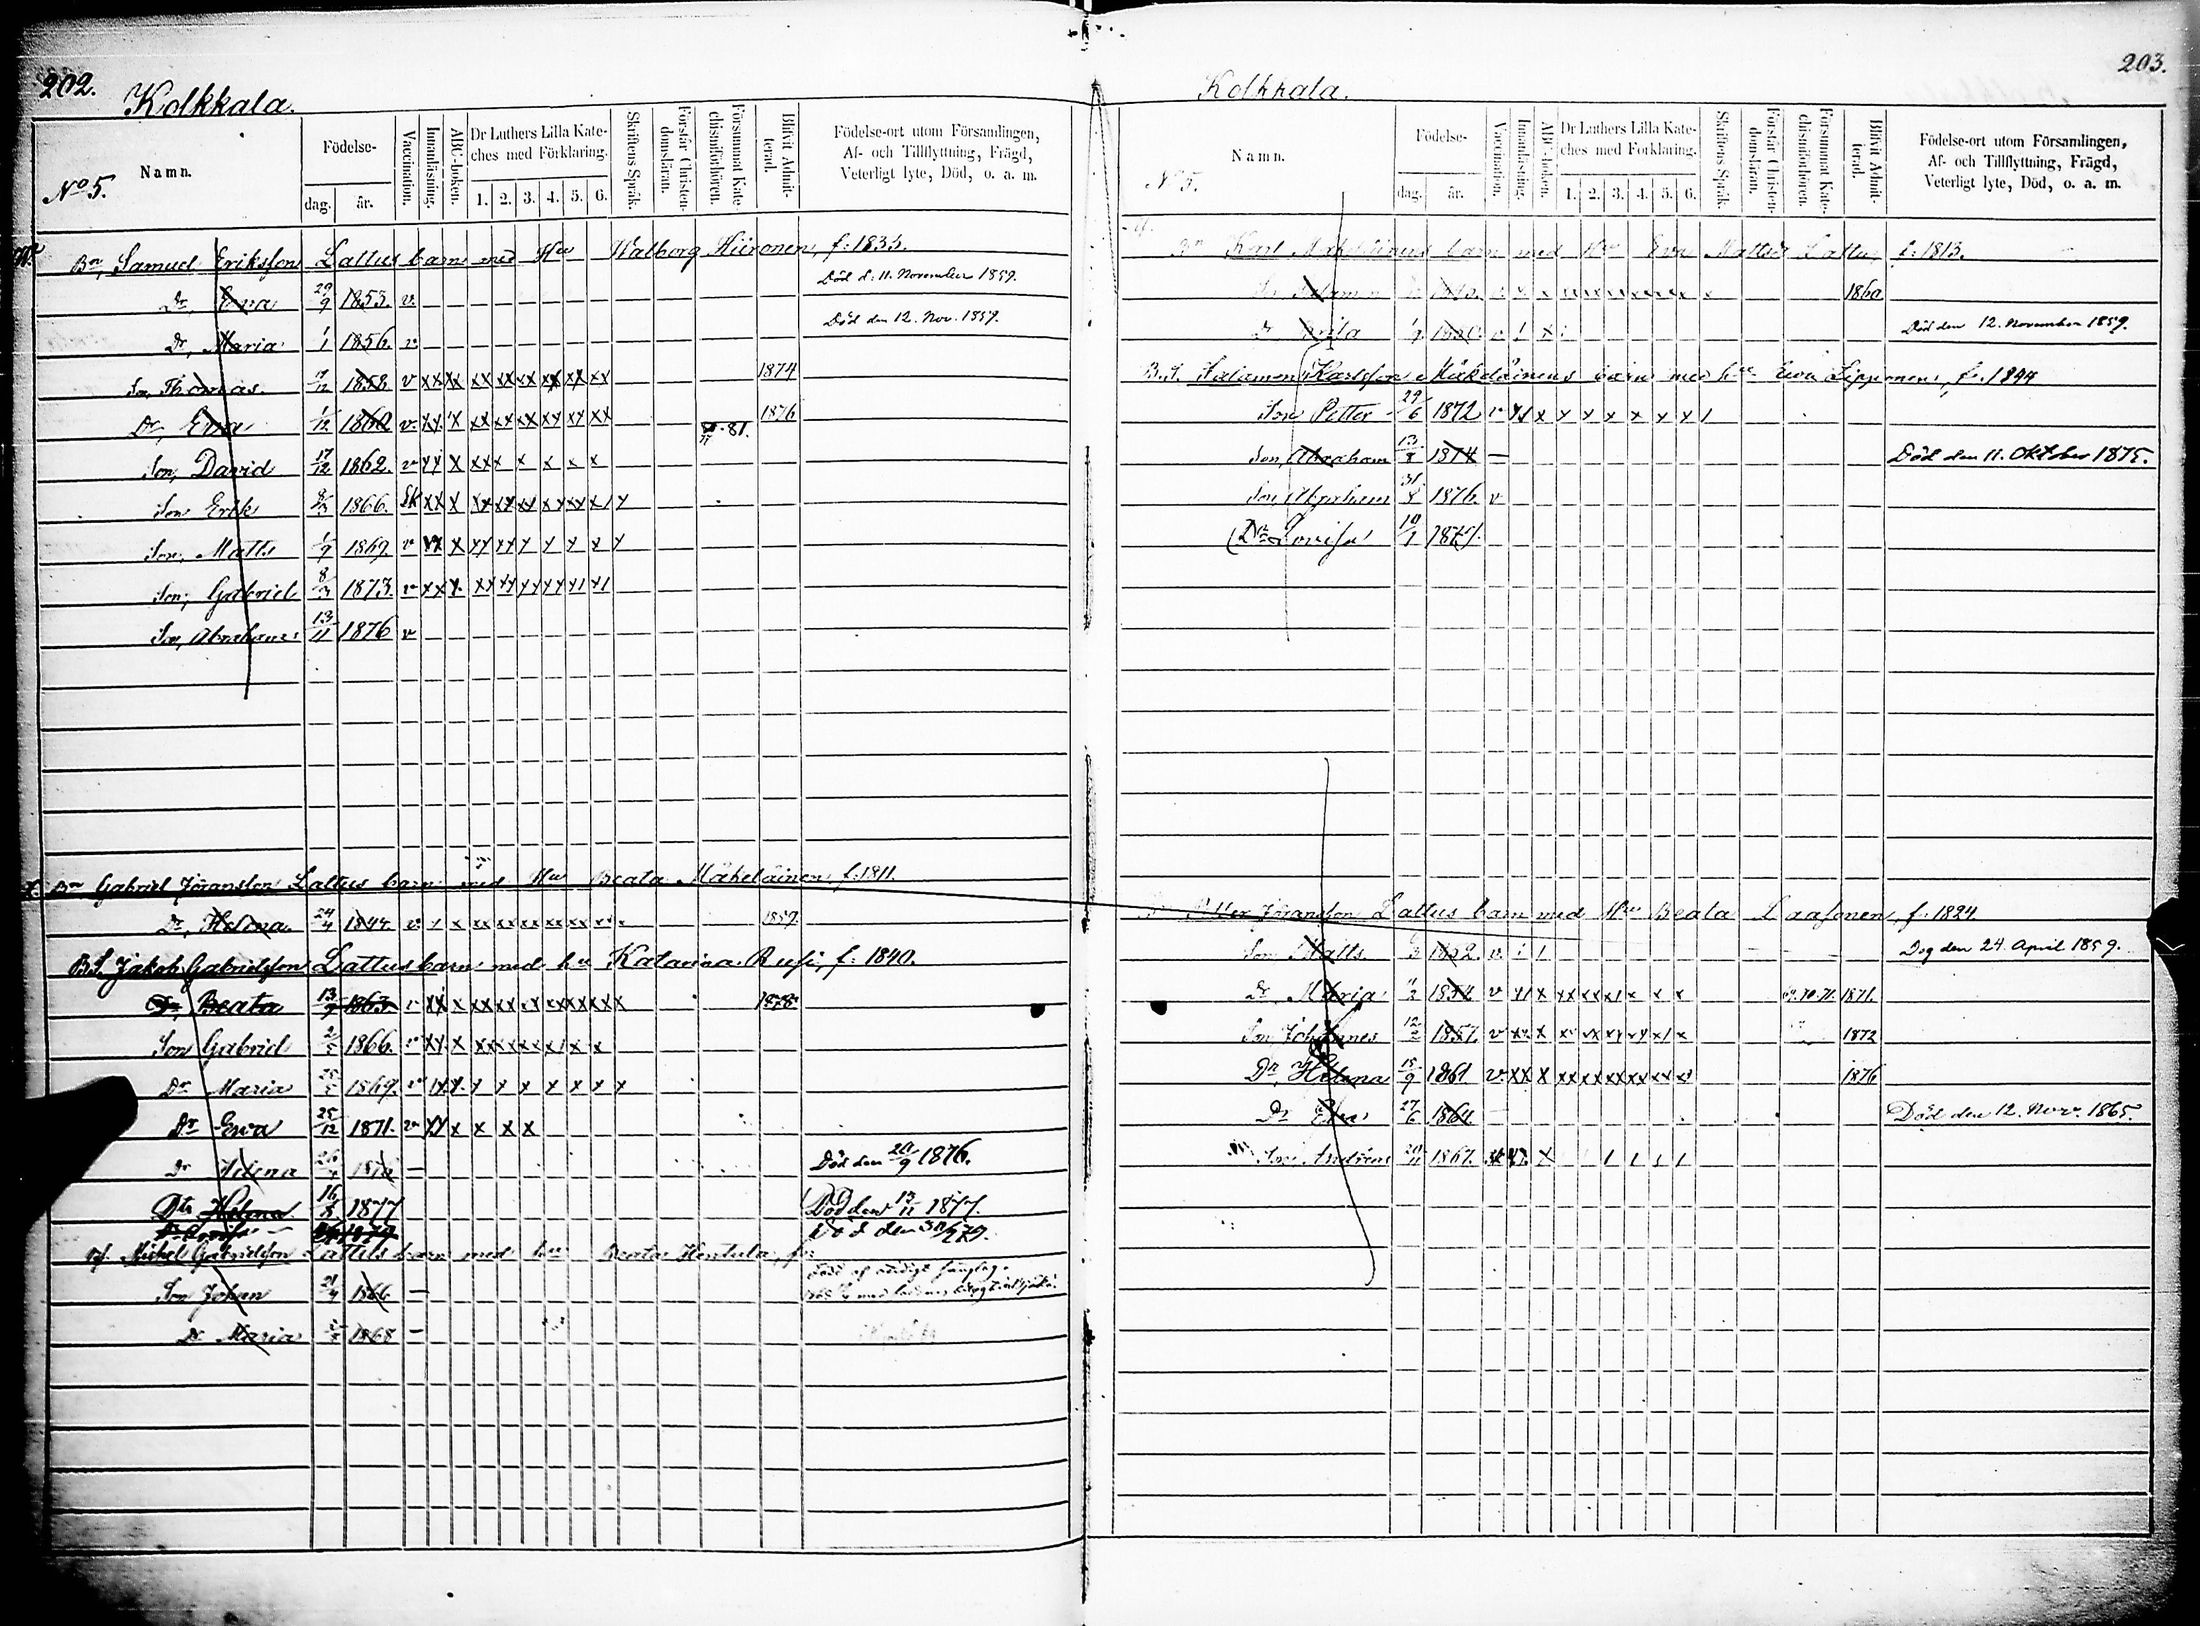 202.
Kolkkala.
No 5.
Namn.
Födelse-
dag. år.
Vaccination.
Innanläsning.
ABC-boken.
Dr Luthers Lilla Kate-
ches med Förklaring.
1. 2. 3. 4. 5. 6.
Skriftens Språk.
Förstår Christen-
domsläran.
Försummat Kate-
chismiförhören.
Blifvit Admit-
terad.
Födelse-ort utom Församlingen,
Af- och Tillflyttning, Frägd,
Veterligt lyte, Död, o. a. m.
Bn, Samuel Eriksson Lattus barn med Hu Walborg Hiironen, f. 1835.
Dr, Ewa 29/9 1853. v. Död d. 11. November 1859.
Dr, Maria 1/1 1856. v Död den 12. Nov. 1859.
Son, Thomas. 1858 v xx xx xx xx xx xx xx xx 1874
Dr, Ewa 1/12 1860 v. xx x xx xx xx xx xx xx 81. 1876
Son, David 17/12 1862. v xx x xxx x x x x
Son Erik 1866. xx x xx xx xx xx xx x
Son, Matts 1/9 1869 v xx x xx xx x x x x
Son, Gabriel 8/3 1873. v xx x xx xx xx xx
Son, Abraham 13/11 1876 v
Bn Gabriel Jöransson Lattus barn med Hu Beata Mäkeläinen f. 1811.
Dr, Helena 24/4 1844. v. x x xx xx xx xx xx 1859.
B.S. Jakob Gabrielsson Lattus barn med hu Katarina Rusi, f. 1840.
Dr, Beata 13/9 1863. v xx x xx xx 1878
Son Gabriel 2/5 1866. v xx x xx x x
Dr Maria 1869. v xx x x x x x x x
Dr Ewa 25/12 1871. v xx x x x x
Dr Helena Död den 20/9 1876.
Dtr Helena 16/8 1877 Död den 13/11 1877.
Dr Lovisa 1879 Död den
Mickel Gabrielsson Lattus barn med hu Beata Hentula, f.
Son Johan 21/4 1866 —
Dr Maria 1868 —
203.
Kolkkala.
N 5.
Namn.
Födelse-
dag. år.
Vaccination.
Innanläsning.
ABC-boken.
Dr Luthers Lilla Kate-
ches med Förklaring.
1. 2. 3. 4. 5. 6.
Skriftens Språk.
Förstår Christen-
domsläran.
Försummat Kate-
chismiförhören.
Blifvit Admit-
terad.
Födelse-ort utom Församlingen,
Af- och Tillflyttning, Frägd,
Veterligt lyte, Död, o. a. m.
Bn Karl Mäkeläinens barn med Hu Eva Mattsd Lattu f. 1813.
Son Salamon 1860
Död den 12. November 1859.
B.S. Salamon Karlsson Mäkeläinens barn med hu Ewa Lipponen, f. 1844
Son Petter 29/6 1872 v xx x x x x x x x
Son, Abraham 13/8 1874 — Död den 11. Oktober 1875.
Son, Abraham 31/8 1876. v
Dr Lovisa 10/1 1879.
Petter Jöransson Lattus barn med Hu Beata Laasonen, f. 1824
Son Matts 1852. v. Dog den 24. April 1859.
Dr, Maria 1854 v x x xx xx x x x 70. 71. 1871.
Son, Johannes 12/2 1857. v xx x 1872
Dr, Helena 15/9 1861 v. xx x xx xx xx xx xx 1876
Dr Ewa 27/6 1864. — Död den 12. Nov. 1865.
Son Andreas 20/11 1867. x